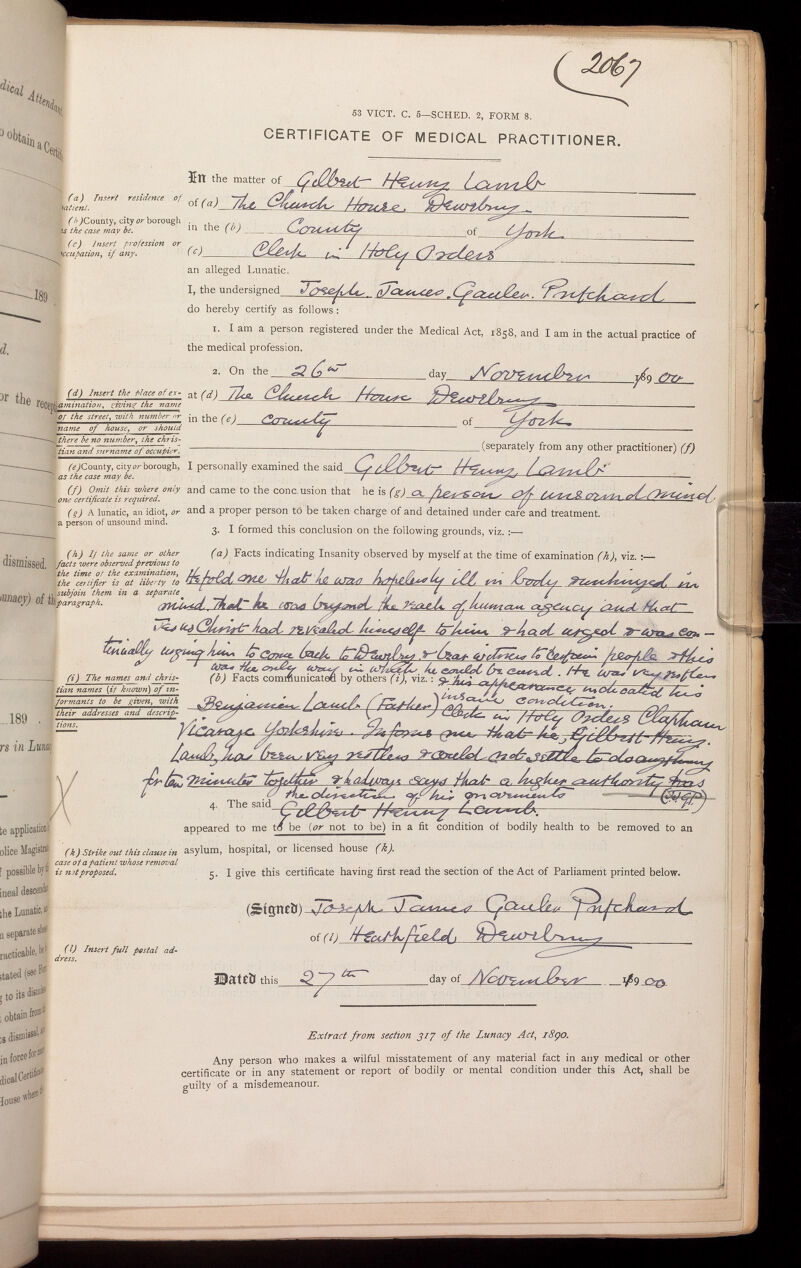 2067
53 VICT. C. 5—SCHED. 2, FORM 8.
CERTIFICATE OF MEDICAL PRACTITIONER.
In the matter of Gilbert Henry Lamb
(a) Insert residence of patient.
of (a) The Church House Dewsbury
(b) County, city or borough as the case may be.
in the (b) County of York
(c) Insert profession or occupation, if any.
(c) Clerk in Holy Orders
an alleged Lunatic.
I, the undersigned Joseph James Gawler Pritchard
do hereby certify as follows:
1. I am a person registered under the Medical Act, 1858, and I am in the actual practice of
the medical profession.
2. On the 26th day November 1900
(d) Insert the place of ex-
amination, giving the name
of the street, with number or
name of house, or should
there be no number, the chris-
tian and surname of occupier.
at (d) The Church House Dewsbury
in the (e) County of York
(separately from any other practitioner) (f)
(e) County, city or borough,
as the case may be.
I personally examined the said Gilbert Henry Lamb
(f) Omit this where only
one certificate is required.
and came to the conclusion that he is (g) a person of unsound mind
(g) A lunatic, an idiot, or
a person of unsound mind.
and a proper person to be taken charge of and detained under care and treatment.
3. I formed this conclusion on the following grounds, viz.:—
(h) If the same or other
facts were observed previous to
the time of the examination,
the certifier is at liberty to
subjoin them in a separate
paragraph.
(a) Facts indicating Insanity observed by myself at the time of examination (h), viz.:—
He told me that he was hopelessly ill in body & unhinged in
mind, That he was beyond the reach of human agency and that
Jesus Christ had revealed himself to him & had urged & was con-
tinually urging him to come back to Dewsbury & bear witness to certain people & this
was the only way in which he could be cured. He was very restless
& his appearance indicated his
insane condition.
(i) The names and chris-
tian names (if known) of in-
formants to be given, with
their addresses and descrip-
tions.
(b) Facts communicated by others (i), viz.:
Benjamin Lamb (Father) Clerk in Holy Orders Clapham
Vicarage Yorkshire. Informs me that he, Gilbert Henry
Lamb, has been very restless & could not settle to do anything
for ten minutes together & always says that a higher authority has
the direction of his movements (J.J.G.P.)
4. The said Gilbert Henry Lamb.
appeared to me to be (or not to be) in a fit condition of bodily health to be removed to an
(k) Strike out this clause in
case of a patient whose removal
is not proposed.
asylum, hospital, or licensed house (k).
5. I give this certificate having first read the section of the Act of Parliament printed below.
(Signed) Joseph James Gawler Pritchard
(l) Insert full postal ad-
dress.
of (l) Heathfield Dewsbury
Dated this 27th day of November 1900
Extract from section 317 of the Lunacy Act, 1890.
Any person who makes a wilful misstatement of any material fact in any medical or other
certificate or in any statement or report of bodily or mental condition under this Act, shall be
guilty of a misdemeanour.